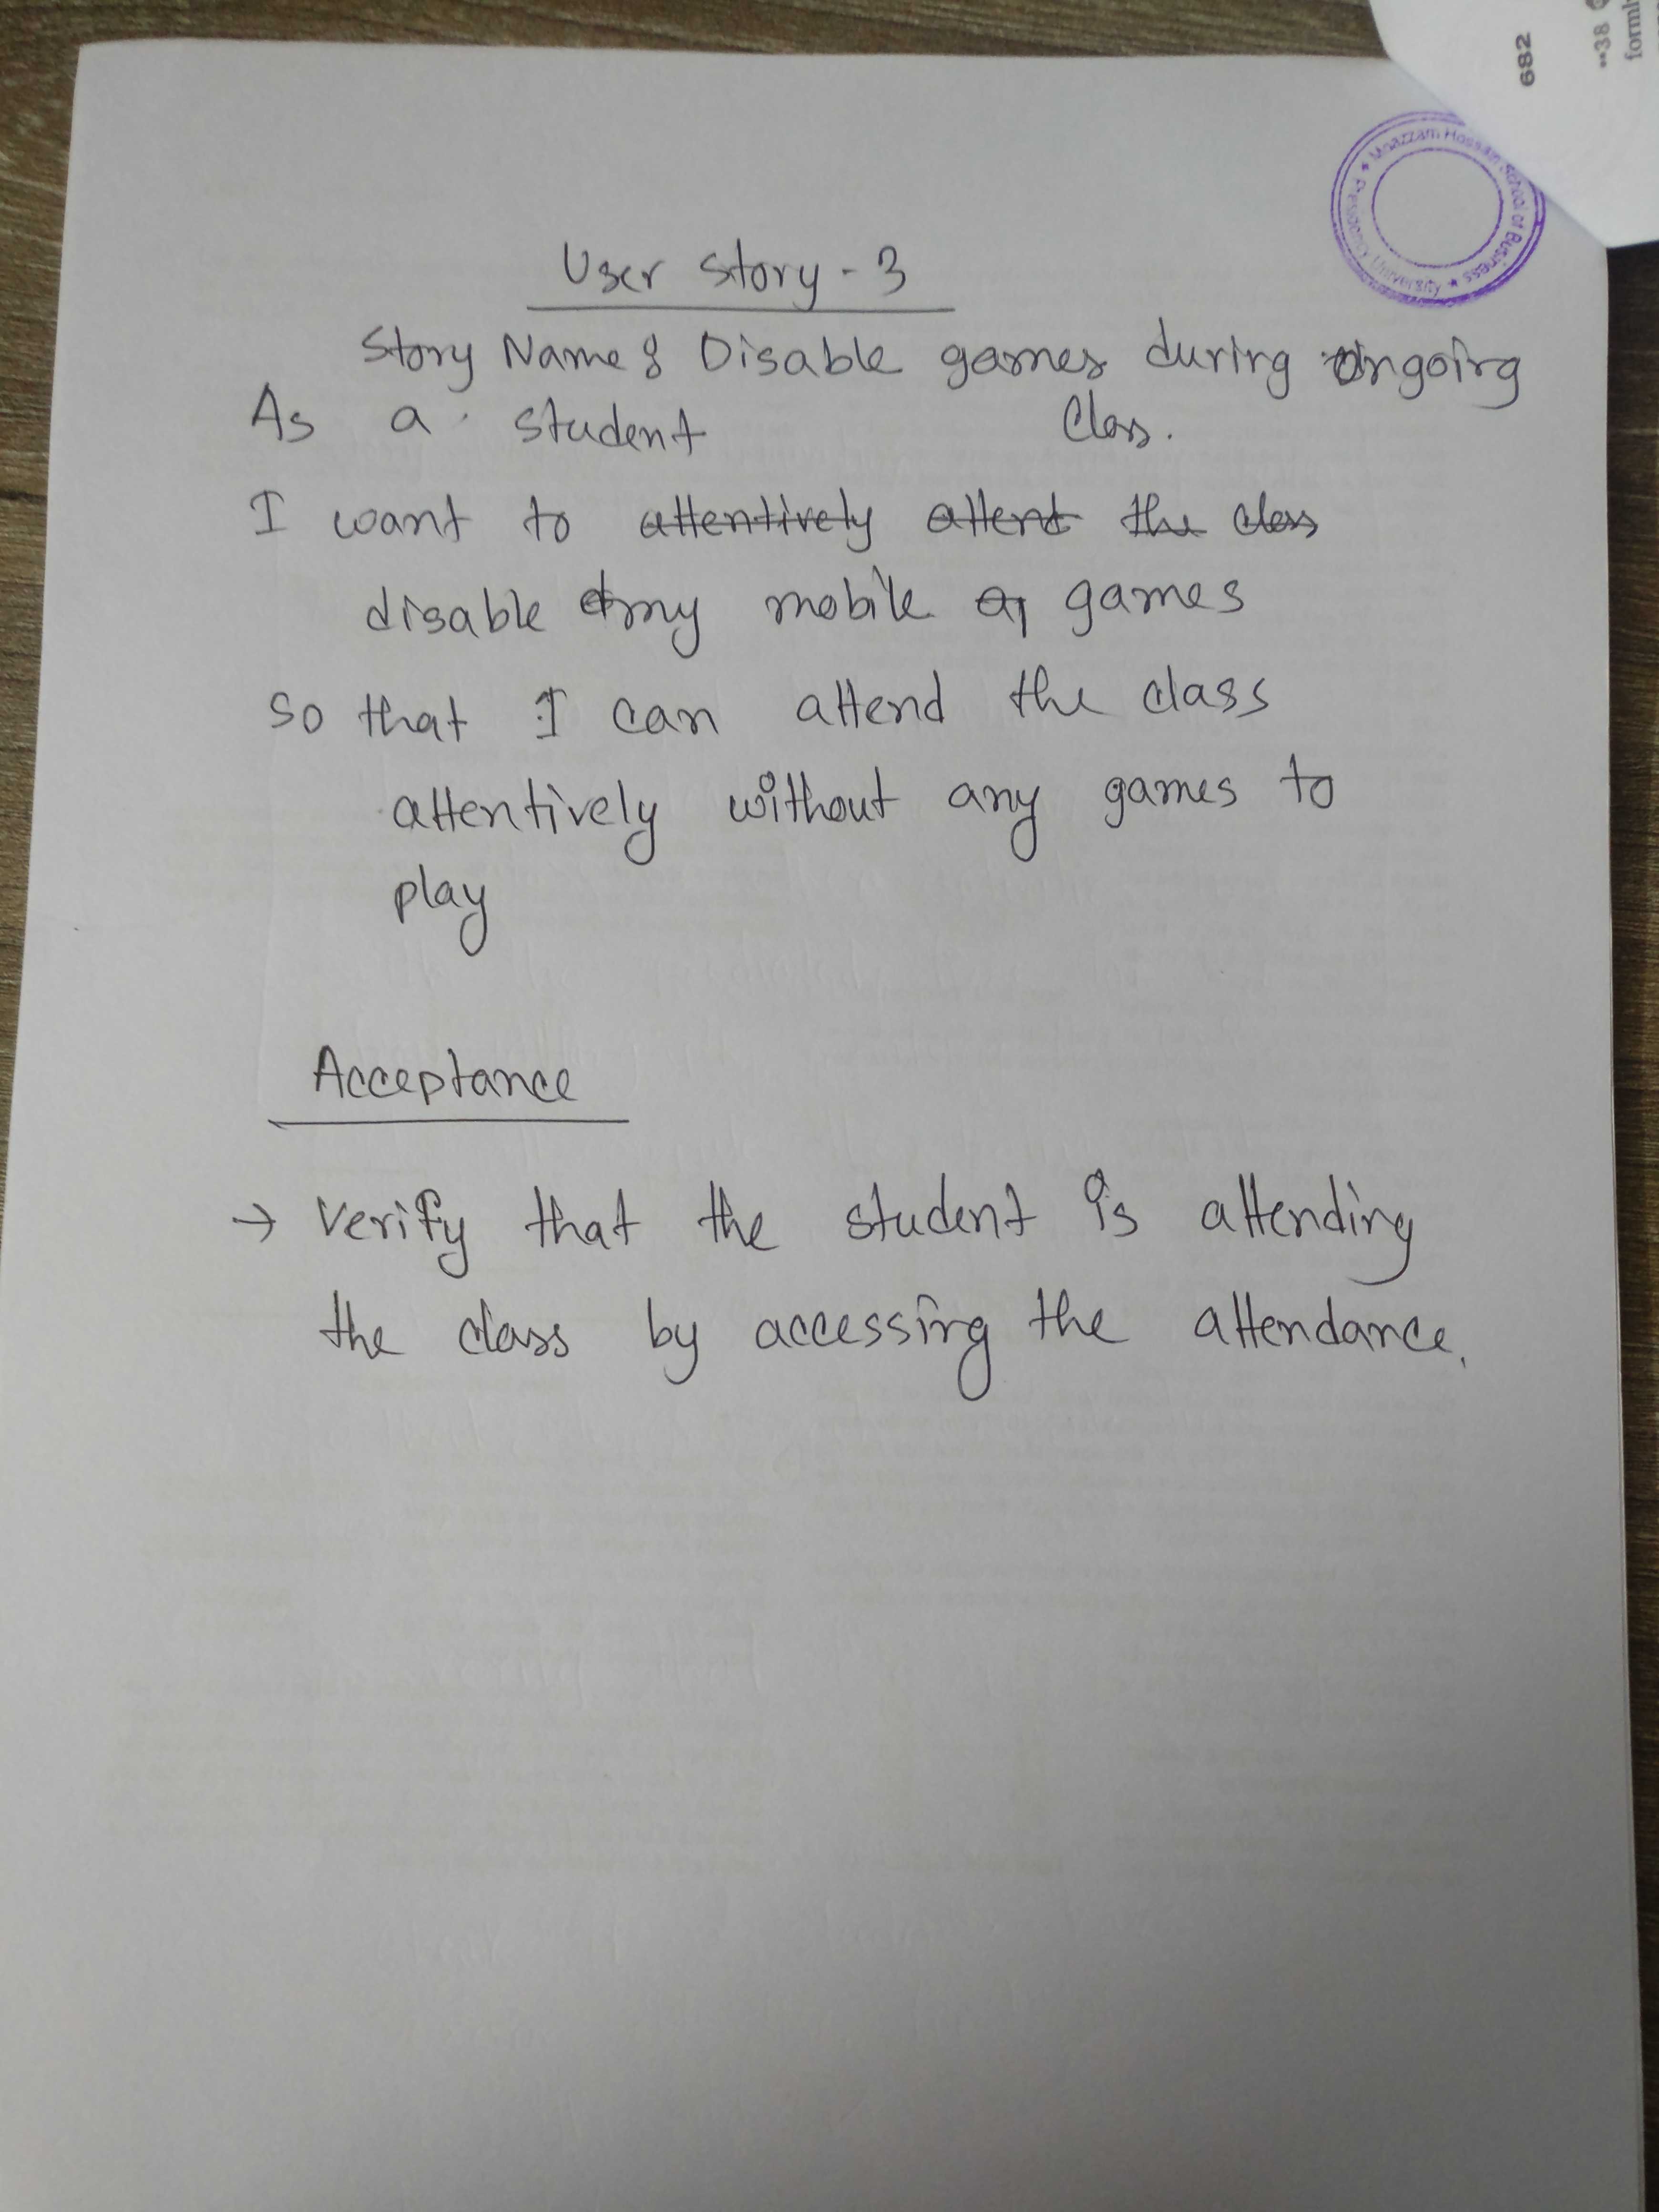 682
"38
forml
Moazzam Hossain School of Business ★ Presidency University ★
User Story - 3
Story Name : Disable games during ongoing
class.
As a student
I want to attentively attend the class
disable my mobile games
so that I can attend the class
attentively without any games to
play
Acceptance
→ Verify that the student is attending
the class by accessing the attendance.